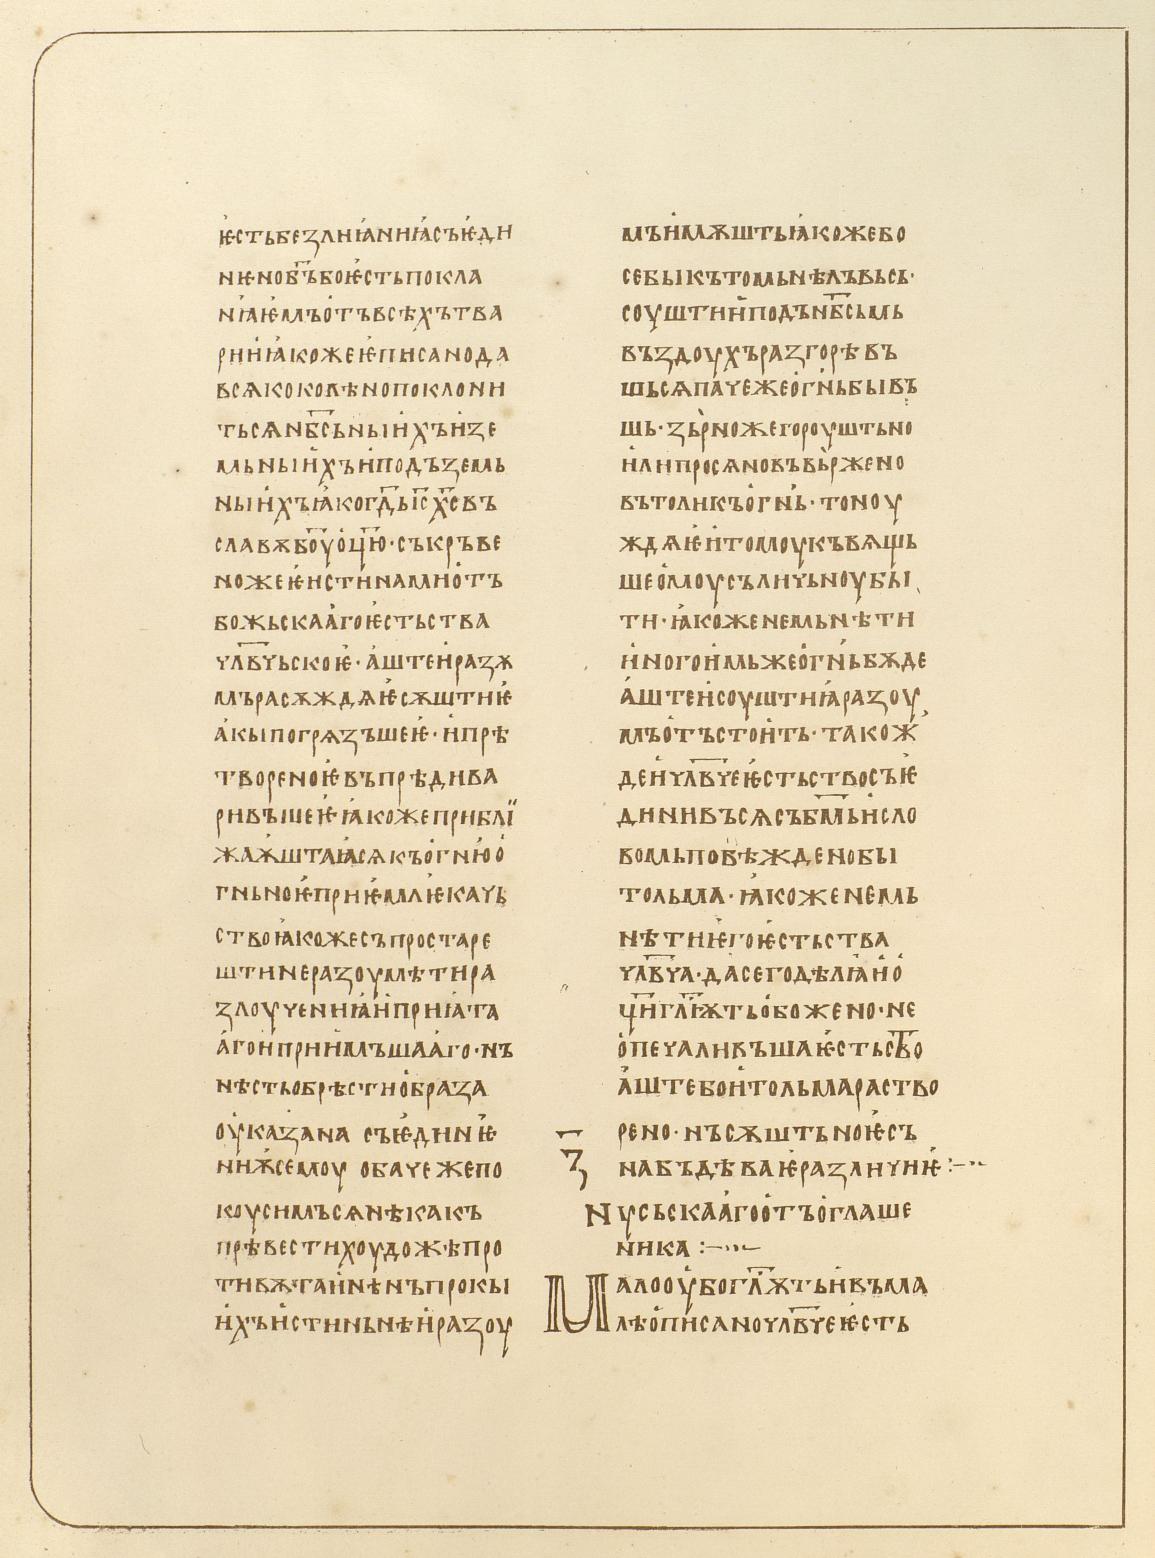 ѥстьбезлиꙗниꙗсъѥди
ниѥнобъ҃боѥстьпокла
нꙗѥмъотъвсѣхътва
риниꙗкожеѥписанода
всѧкоколѣнопоклони
тьсѧнб҃сьныихъизе
мьныихъиподъземь
ныихъꙗкогд҃ьіс҃х҃севъ
славѫбо҃уоц҃ю·съкръве
ножеѥистинамиотъ
божьскаагоѥстьства
члв҃чьскоѥ·аштеиразѫ
мърасѫждѧѥсѫштиѥ
акыпогрѧзъшеѥ·ипрѣ
твореноѥвъпрѣдива
ривъшеѥꙗкожеприблї
жаѫштаꙗсѧкъогнюо
гньноѥприѥмлѥкачь
ствоꙗкожесъпростаре
штинеразоумѣтира
злоучениꙗиприꙗта
агоиприимъшааго·нъ
нѣстьобрѣстиобраза
оуказана съѥдинѥ
ниѭсемоу обачежепо
коусимъсѧнѣкакъ
прѣвестихоудожѣпро
тивѫгаинѣнъпрокы
ихъистиньнѣиразоу
мъимѫштьꙗкожебо
себыкътомьнѣлъвьсь·
соуштииподънб҃сьмь
въздоухъразгорѣвъ
шьсѧпачежеогньбывъ
шь·зьрножегороуштьно
илипросѧновъвьржено
вътоликъогнь·тоноу
ждѧѥитомоукъвѧщь
шеомоусъличьноубы
ти·ꙗкоженемьнѣти
иногоимьжеогньбѫде
аштеисоуштиꙗразоу
мъотъстоить·також
деичлв҃чеѥстьствосъѥ
динивъсѧсъбм҃ьисло
вомьповѣжденобы
тольма·ꙗкоженемь
нѣтиѥгоѥстьства
члв҃ча·дасегодѣлꙗио
ци҃гл҃ѭтьобожено·не
опечаливъшаѥстьств҃о
аштебоитольмараство
рено·нъсѫштьноѥсъ
з҃ набъдѣваѥразличиѥ:–··
нчсьскаагоотъоглаше
ника:–···–
Малооубогл҃ѫтьивъма
лѣописаночлв҃чеѥсть